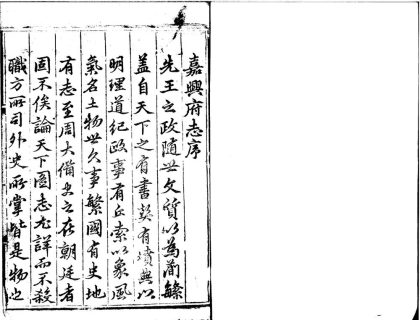 嘉興府志序
先王之政隨世文質以為簡繁
盖自天下之有書契有墳典以
明理道紀政事有丘索以象風
氣名土物世久事繁國有史地
有志至周大備史之在朝廷者
固不俟論天下圖志尤詳而不殺
職方所司外史所掌皆是物也